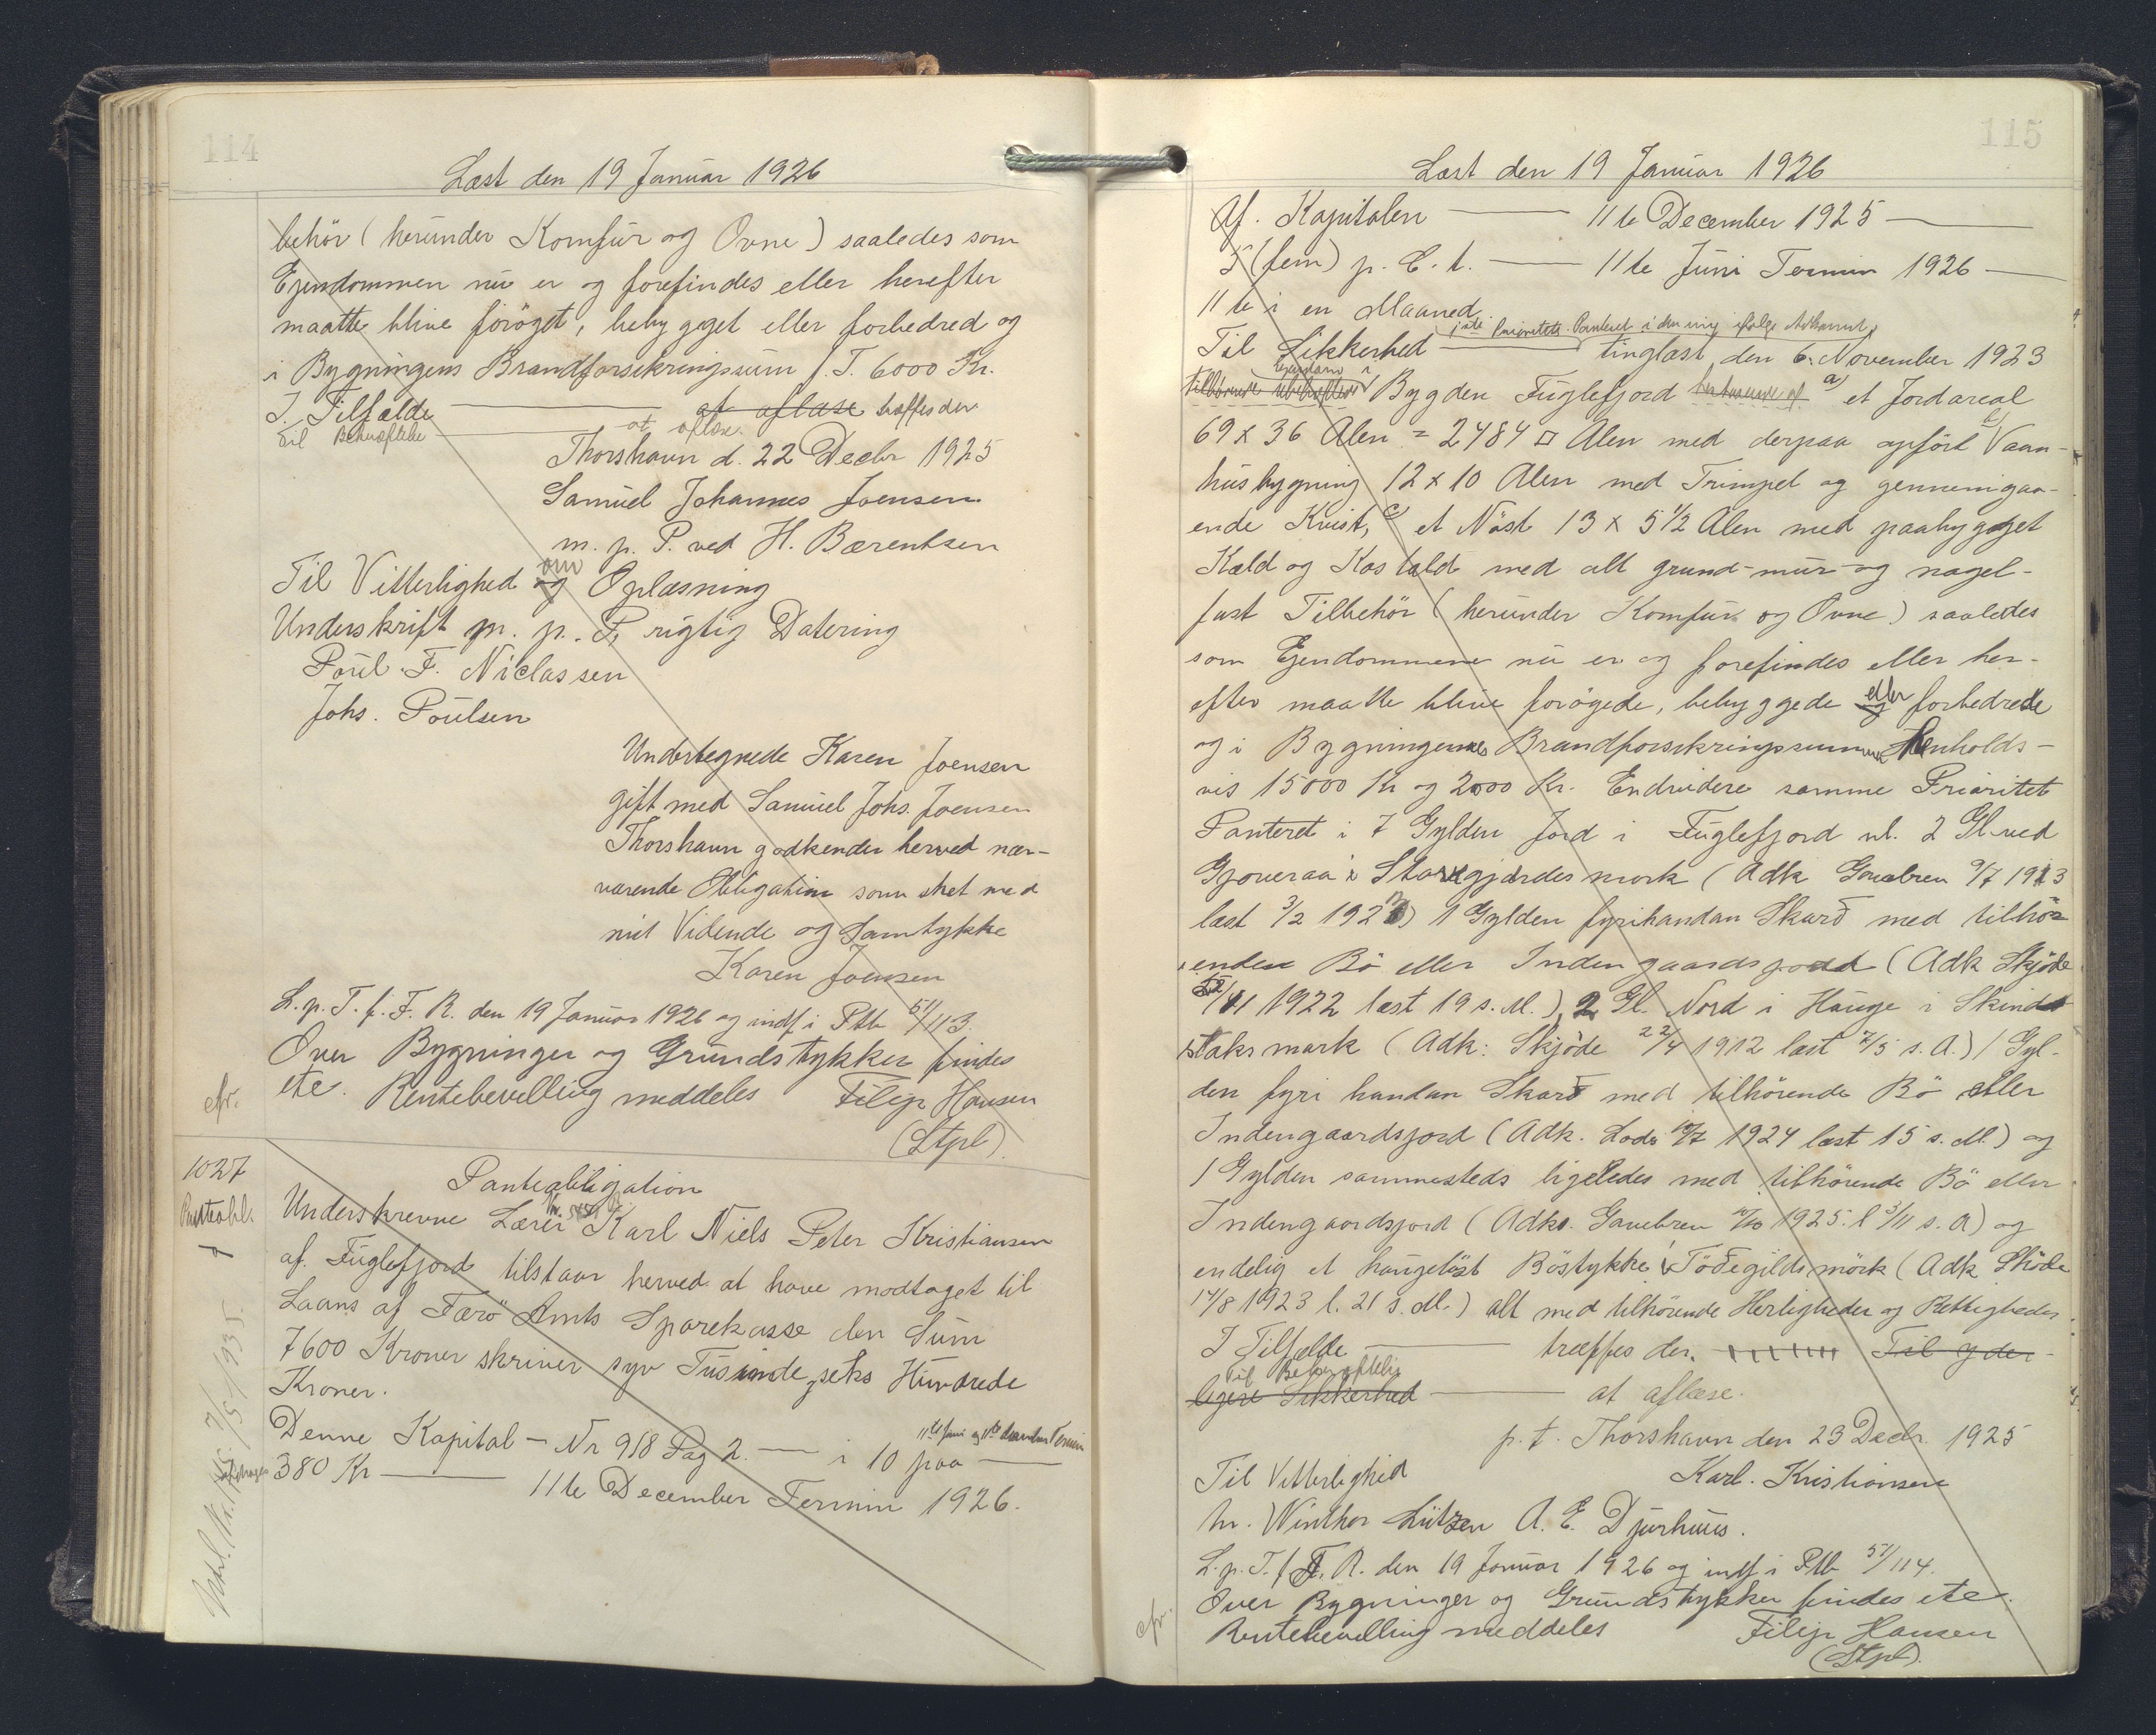 114
Læst den 19 Januar 1926
behör (herunder Komfur og Ovne) saaledes som
Ejendommen nu er og forefindes eller herefter
maatte blive foröget, bebygget eller forbedred og
i Bygningens Brandforsikringssum f. T. 6000 Kr.
I. Tilfælde ——— at aflæse træffes der
Til Bekræftelse ——— at aflæse.
Thorshavn d. 22 Decbr 1925
Samuel Johannes Joensen
m. p. P. ved H. Bærentsen
Til Vitterlighed og om Oplæsning
Underskrift m. p. P, rigtig Datering
Poul. F. Niclassen
Johs. Poulsen
Undertegnede Karen Joensen
gift med Samuel Johs. Joensen
Thorshavn godkender herved nær-
værende Obligation som sket med
mit Vidende og Samtykke
Karen Joensen
L. p. T. f. F. R. den 19 Januar 1926 og indf i Ptb 51/113.
Over Bygninger og Grundstykker findes
cfr. etc. Rentebevilling meddeles Filip Hansen
(Stpl).
1027
Panteobligation
Underskrevne Lærer Karl Niels Peter Kristiansen
af. Fuglefjord tilstaar herved at have modtaget til
Laans af Færö Amts Sparekasse den Sum
7600 Kroner skriver syv Tusinde, seks Hundrede
Kroner.
Denne Kapital — Nr 918 Pag 2. — i 10 paa 11te Juni og 11te December Termin —
380 Kr ——— 11te December Termin 1926.
115
Læst den 19 Januar 1926
Af. Kapitalen ——— 11te December 1925 ———
5 (fem) p. C. t. ——— 11te Juni Termin 1926 —
11te i en Maaned
Til Sikkerhed ——— Panteret i den mig ifølge Adkomst, tinglæst den 6. November 1923
tilhörende Ejendom i Bygden Fuglefjord bestaaende af a) et Jordareal
69 x 36 Alen = 2484 □ Alen med derpaa opfört b) Vaan-
husbygning 12 x 10 Alen med Trimpel og gennemgaa-
ende Kvist, c) et Nöst 13 x 5 1/2 Alen med paabygget
Kæld og Kostald med alt grund-mur-og nagel-
fast Tilbehör (herunder Komfur og Ovne) saaledes
som Ejendommene nu er og forefindes eller her-
efter maatte blive forögede, bebyggede og eller forbedrede
og i Bygningernes Brandforsikringssummer henholds-
vis 15000 Kr og 2000 Kr. Endvidere samme Prioritet
Panteret i 7 Gylden Jord i Fuglefjord nl. 2 Gl ved
Gjoveraa i Starvgjærdesmork (Adk Gavebrev 9/7 1913
læst 3/2 192) 1 Gylden fyrihandan Skarð med tilhör
ende Bö eller Indengaardsjord (Adk Skjöde
/11 1922 læst 19 s. M.), 2 Gl. Nord i Hauge i Skind
staks mark (Adk: Skjöde 22/4 1912 læst 7/5 s. A.) 1 Gyl-
den fyri handan Skarð med tilhörende Bö eller
Indengaardsjord (Adk. Lods 10/7 1924 læst 15 s. M.) og
1 Gylden sammesteds ligeledes med tilhörende Bö eller
Indengaardsjord (Adk. Gavebrev 10/10 1925. l 3/11 s. A) og
endelig et haugelöst Böstykke i Töðegilds mörk (Adk Sköde
14/8 1923 l. 21 s. M.) alt med tilhörende Herligheder og Rettigheder
I Tilfælde ——— træffes der. Til yder-
ligere Sikkerhed Til Bekræftelse ——— at aflæse.
p. t. Thorshavn den 23 Decbr. 1925
Til Vitterlighed Karl. Kristiansen
M. Winther Lützen A. E. Djurhuus.
L. p. T. f F. R. den 19 Januar 1926 og indf i Ptb 51/114.
Over Bygninger og Grundstykker findes etc.
cfr. Rentebevilling meddeles Filip Hansen
(Stpl).